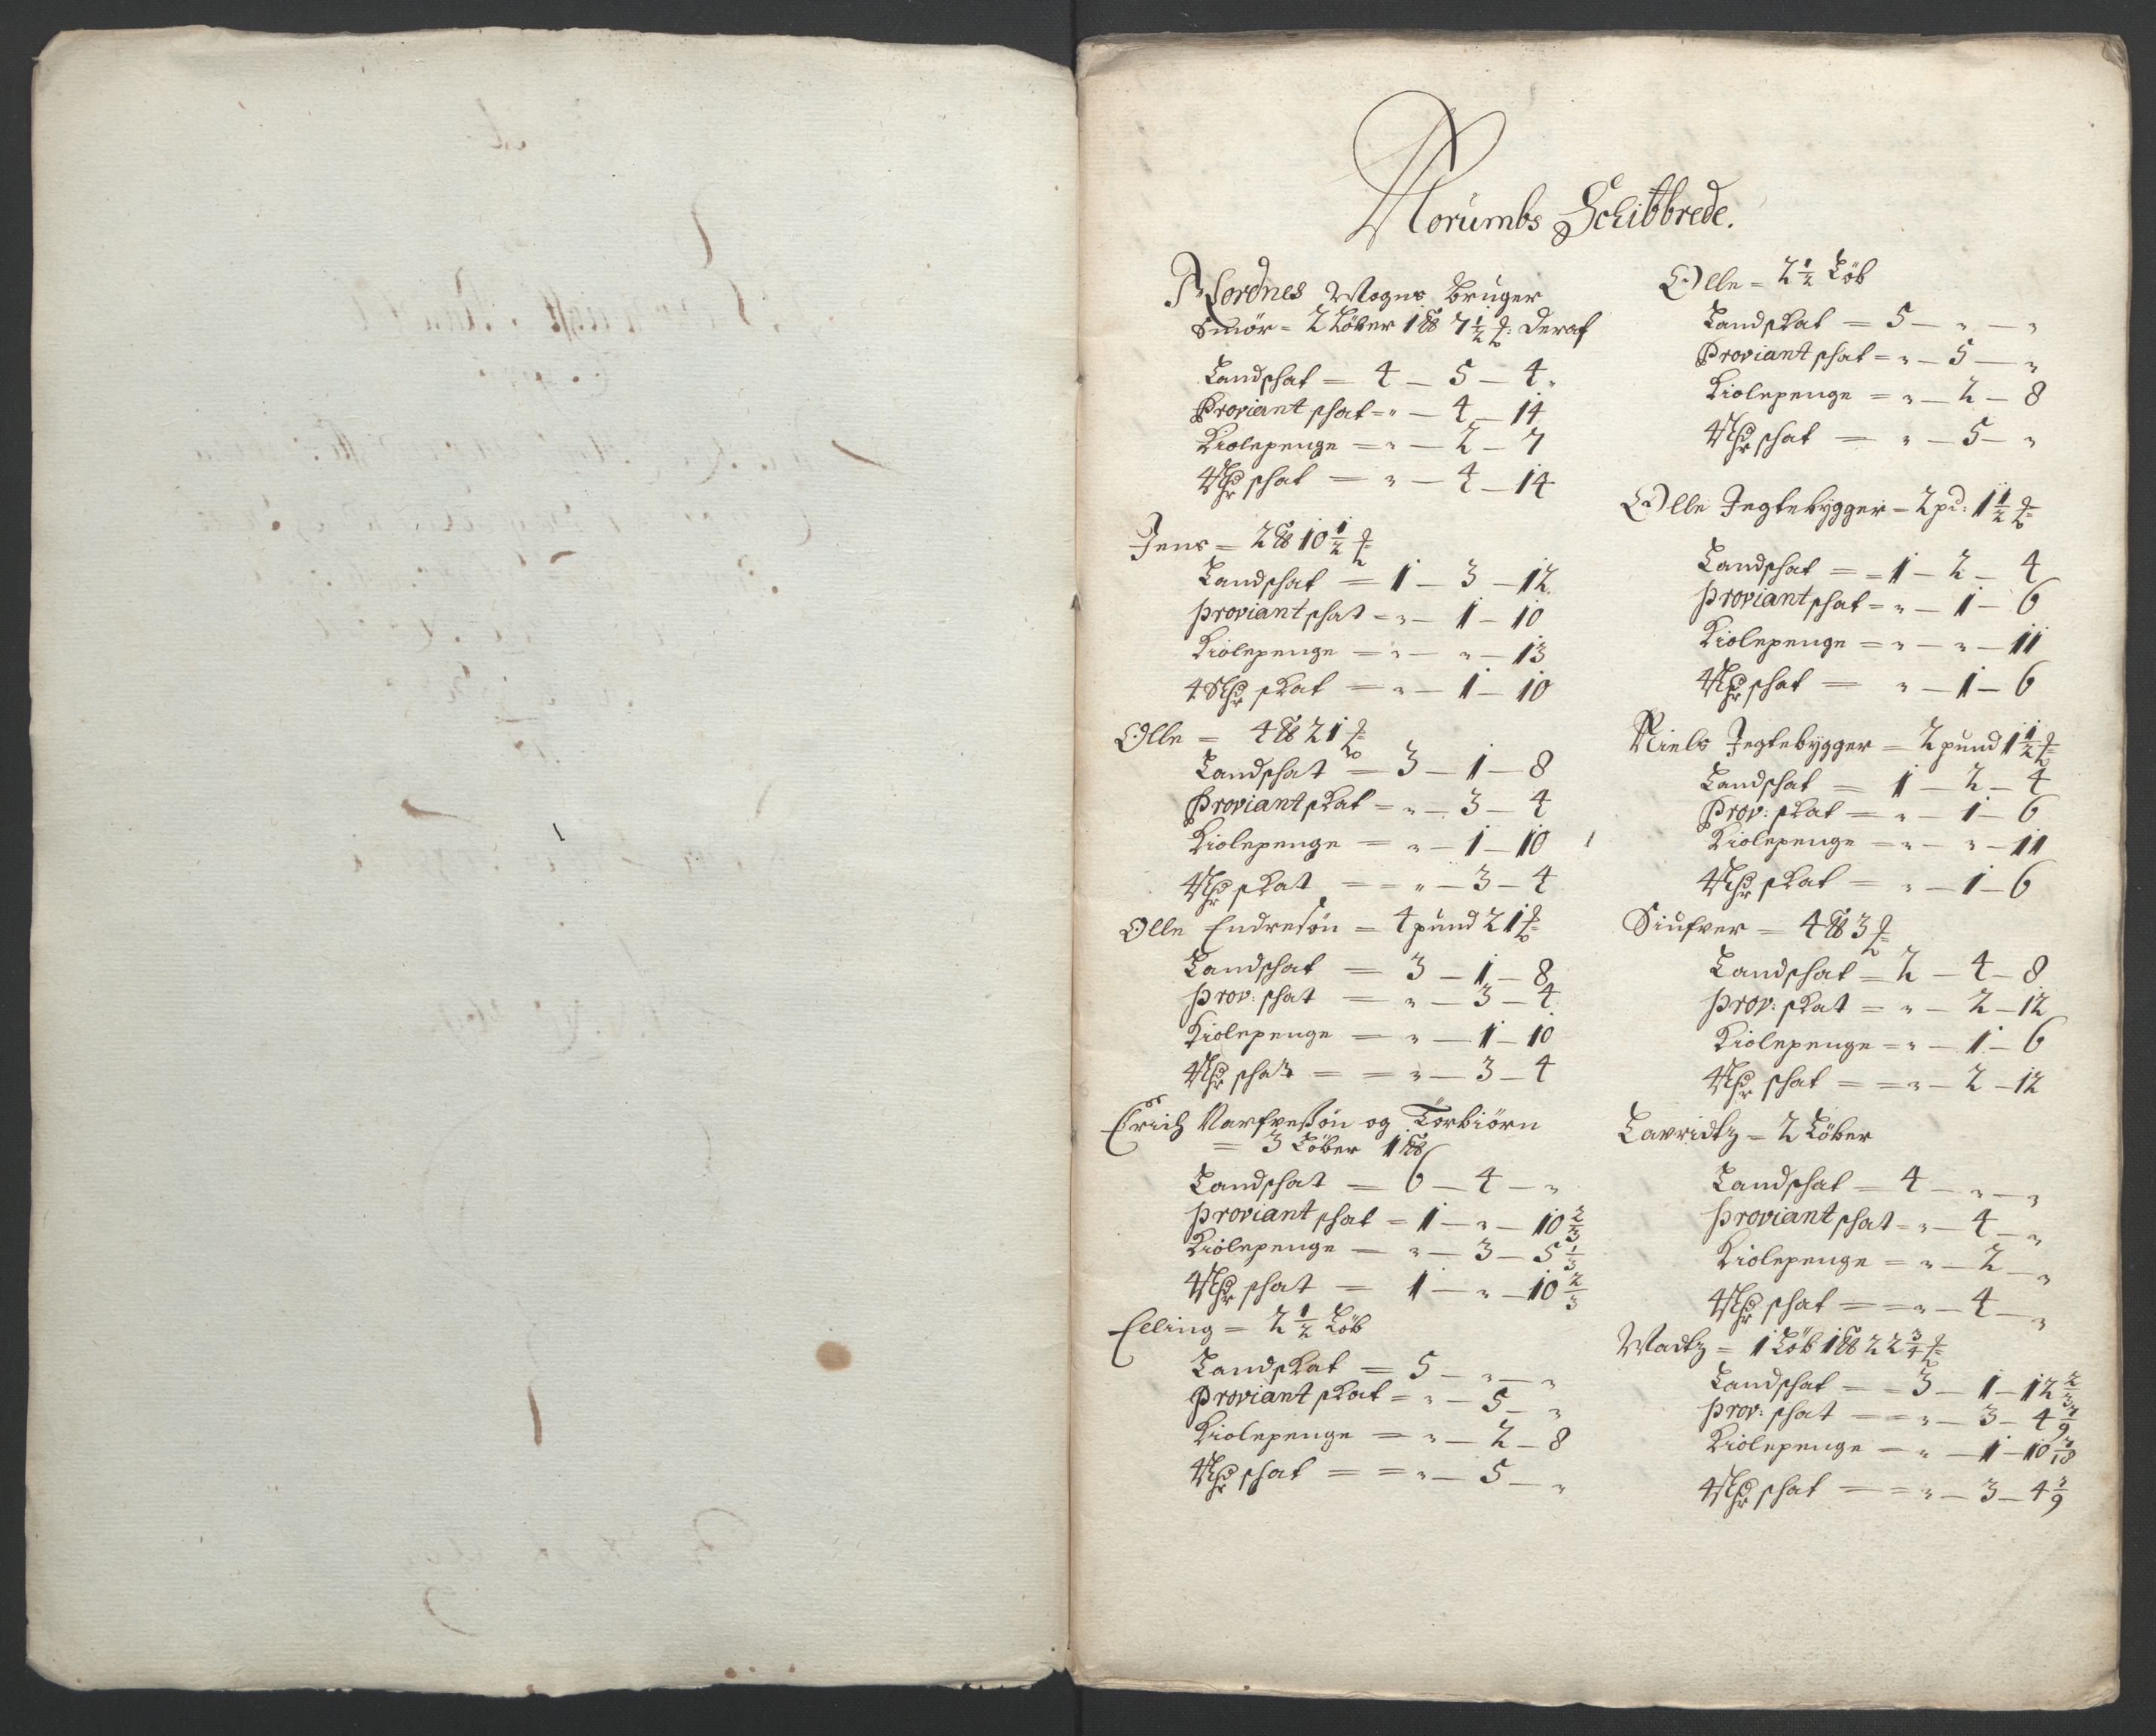 Norumbs Schibbrede.
Nordnes Mogns bruger
Smör = 2 Löber 1 ℔ 7 1/2 ₰: deraf
Landschat = 4 – 5 – 4
Proviantschat = " – 4 – 14
Kiolepenge = " – 2 – 7
4 Mhr schat = " – 4 – 14
Jens = 2 ℔ 10 1/2 ₰
Landschat = 1 – 3 – 12
proviantschat = " – 1 – 10
Kiolepenge = " – " – 13
4 Mhr skat = " – 1 – 10
Olle = 4 ℔ 21 ₰
Landschat = 3 – 1 – 8
Proviantskat = " – 3 – 4
Kiolepenge = " – 1 – 10
4 Mhr skat = " – 3 – 4
Olle Endresön = 4 pund 21 ₰
Landschat = 3 – 1 – 8
prov: schat = " – 3 – 4
Kiolepenge = " – 1 – 10
4 Mhr schat = = " – 3 – 4
Erich Narfvesön og Torbiörn
= 3 Löber 1 ℔
Landschat = 6 – 4 – "
proviantschat = 1 – " – 10 2/3
Kiolepenge = " – 3 – 5 1/3
4 Mhr schat = 1 – " – 10 2/3
Elling = 2 1/2 Löb
Landskat = 5 – " – "
Proviantskat = " – 5 – "
Kiolepenge = " – 2 – 8
4 Mhr schat = = " – 5 – "
Olle = 2 1/2 Löb
Landskat = 5 – " – "
Proviantschat = " – 5 – "
Kiolepenge = " – 2 – 8
4 Mhr schat = " – 5 – "
Olle Jegtebygger = 2 pd: 1 1/2 ₰
Landschat = = 1 – 2 – 4
proviantschat = " – 1 – 6
Kiolepenge = " – " – 11
4 Mhr schat = " – 1 – 6
Niels Jegtebygger = 2 pund 1 1/2 ₰
Landschat = 1 – 2 – 4
Prov: skat = " – 1 – 6
Kiolepenge = " – " – 11
4 Mhr skat = " – 1 – 6
Siufver = 4 ℔ 3 ₰
Landschat = 2 – 4 – 8
prov: skat = " – 2 – 12
Kiolepenge = " – 1 – 6
4 Mhr schat = = " – 2 – 12
Lavridtz = 2 Löber
Landschat = 4 – " – "
proviantschat = " – 4 – "
Kiolepenge = " – 2 – "
4 Mhr schat = = " – 4 – "
Madtz = 1 Löb 1 ℔ 22 3/4 ₰
Landschat = = 3 – 1 – 12 2/3
prov: schat = = " – 3 – 4 7/9
Kiolepenge = " – 1 – 10 7/18
4 Mhr schat = = " – 3 – 4 7/9